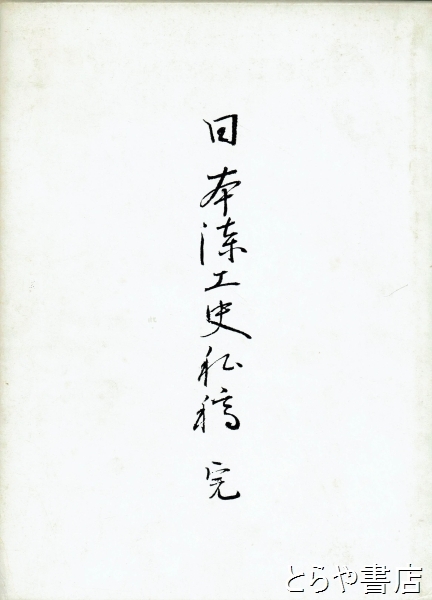 日本漆工史私稿 完
とらや書店